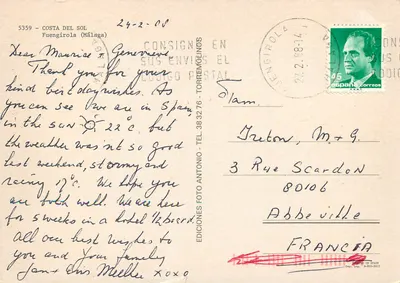 5359 - COSTA DEL SOL
Fuengirola (Málaga)
24-2-88
Dear Maurice & Genevieve
Thank you for your
kind birthday wishes. As
you can see we are in Spain,
in the sun 22°c, but
the weather wasn't so good
last weekend, stormy and
rainy 17°c. We hope you
are both well. We are here
for 5 weeks in a hotel 1/2 board.
All our best wishes to
you and your family
xoxo
EDICIONES FOTO ANTONIO - TEL. 38 32 76 - TORREMOLINOS
CONSIGNE EN
SUS ENVIOS EL
CODIGO POSTAL
FUENGIROLA
España
correos
Fam.
Treton, M. + G.
3 Rue Scardon
80106
Abbeville
FRANCIA